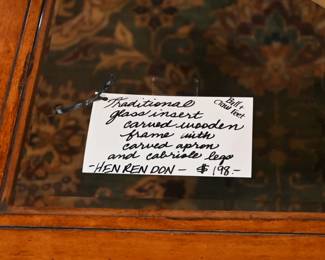 Traditional
glass insert
carved wooden
frame with
carved apron
and cabriole legs
-HENRENDON- $198.-
Ball +
Claw feet